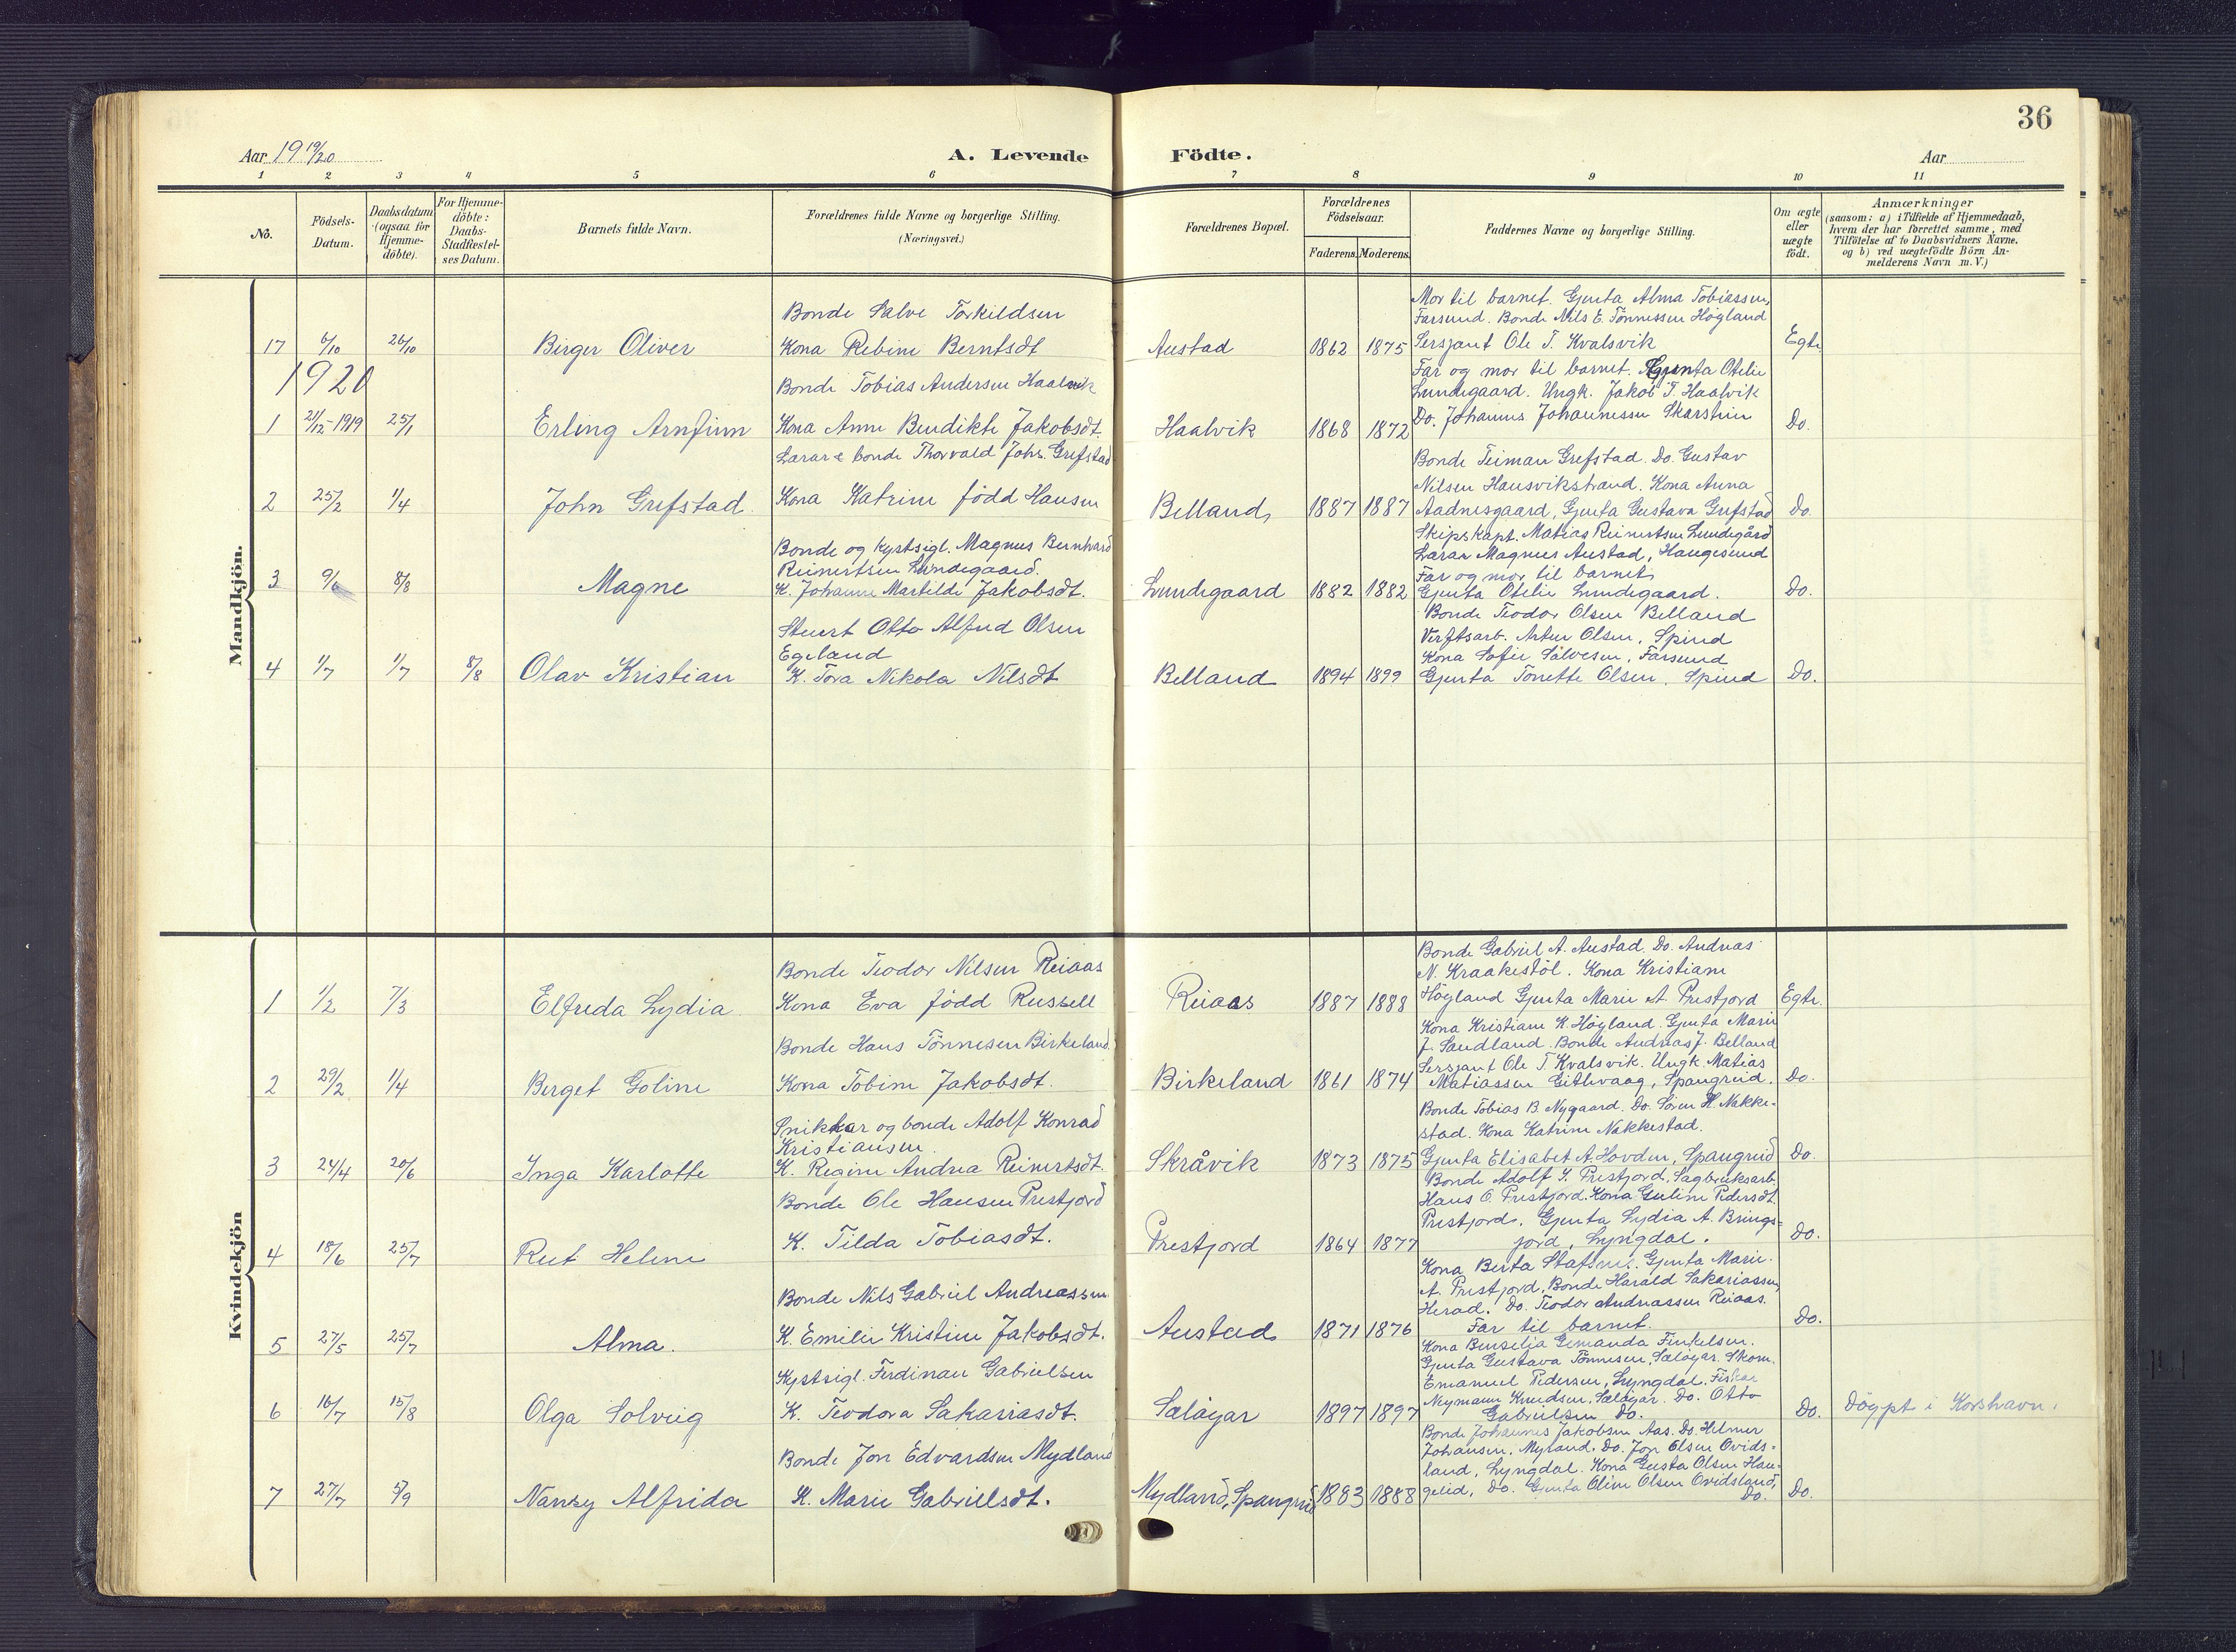 36
Aar 19 19/20
A. Levende Födte.
Aar
1 2 3 4 5 6 7 8 9 10 11
No.
Födsels-Datum.
Daabsdatum (ogsaa for Hjemme-döbte).
For Hjemme-döbte: Daabs-Stadfæstel-ses Datum.
Barnets fulde Navn.
Forældrenes fulde Navne og borgerlige Stilling.
(Næringsvei.)
Forældrenes Bopæl.
Forældrenes Födselsaar.
Faderens. Moderens.
Faddernes Navne og borgerlige Stilling.
Om ægte eller uægte födt.
Anmærkninger
(saasom: a) i Tilfælde af Hjemmedaab, hvem der har forrettet samme, med Tilföielse af to Daabsvidners Navne, og b) ved uægtefödte Börn An-melderens Navn m.V.)
Mandkjön.
17 6/10 26/10 Birger Oliver
Bonde Salve Torkildsen
Kona Rebine Berntsdt
Austad 1862 1875
Mor til barnet. Gjenta Alma Tobiassen,
Farsund. Bonde Nils E. Tönnessen Högland
Sersjant Ole T. Kvalsvik
Egte
1920
1 21/12-1919 25/1 Erling Arnfinn
Bonde Tobias Andersen Haalvik
Kona Anne Bendikte Jakobsdt.
Haalvik 1868 1872
Far og mor til barnet. Gjenta Otelie
Lundegaard. Ungk. Jakob T. Haalvik
Do. Johannes Johannessen Skarstein
Do.
2 25/2 1/4 John Grefstad
Lærar & bonde Thorvald Johs. Grefstad
Kona Katrine född Hansen
Belland 1887 1887
Bonde Teiman Grefstad. Do. Gustav
Nilsen Hausvikstrand. Kona Anna
Aadnesgaard, Gjenta Gustava Grefstad
Do.
3 9/6 8/8 Magne
Bonde og kystsigl. Magnus Bernhard
Reinertsen Lundegaard.
K. Johanne Martilde Jakobsdt.
Lundegaard 1882 1882
Skipskapt. Matias Reinertsen Lundegård
Lærar Magnus Austad, Haugesund
Far og mor til barnet
Gjenta Otelie Lundegaard.
Do.
4 1/7 1/7 8/8 Olav Kristian
Stuert Otto Alfred Olsen
Egeland
K. Tora Nikola Nilsdt
Belland 1894 1899
Bonde Teodor Olsen Belland
Verftsarb. Artur Olsen, Spind
Kona Sofie Sålvesen, Farsund
Gjenta Tonette Olsen, Spind
Do.
Kvindekjön
1 1/2 7/3 Elfreda Lydia
Bonde Teodor Nilsen Reiaas
Kona Eva född Russell
Reiaas 1887 1888
Bonde Gabriel A. Austad. Do. Andreas
N. Kraakestöl. Kona Kristiane
Högland Gjenta Marie A. Prestjord
Egte.
2 29/2 1/4 Berget Goline
Bonde Hans Tönnesen Birkeland.
Kona Tobine Jakobsdt.
Birkeland 1861 1874
Kona Kristiane K. Högland. Gjenta Marie
J. Sandland. Bonde Andreas J. Belland
Sersjant Ole T. Kvalsvik. Ungk. Matias
Matiassen Githvaag, Spangreid.
Do.
3 24/4 20/6 Inga Karlotte
Snikkar og bonde Adolf Konrad
Kristiansen.
K. Regine Andrea Reinertsdt.
Skråvik 1873 1875
Bonde Tobias B. Nygaard. Do. Sören H. Nakke-
stad. Kona Katrine Nakkestad.
Gjenta Elisabet A. Hovden, Spangreid
Do.
4 18/6 25/7 Rut Helene
Bonde Ole Hansen Prestjord
K. Tilda Tobiasdt.
Prestjord 1864 1877
Bonde Adolf T. Prestjord, Sagbruksarb.
Hans O. Prestjord. Kona Guline Pedersdt.
Prestjord. Gjenta Lydia A. Brings-
jord, Lyngdal.
Do.
5 27/5 25/7 Alma.
Bonde Nils Gabriel Andreassen.
K. Emilie Kristine Jakobsdt.
Austad 1871 1876
Kona Berta. Gjenta Marie
A. Prestjord, Bonde Harald Sakariassen,
Herad. Do. Teodor Andreassen Reiaas.
Far til barnet.
Do.
6 16/7 15/8 Olga Solveig
Kystsigl. Ferdinan Gabrielsen
K. Teodora Sakariasdt.
Sælöyar 1897 1897
Kona Benselia Gemanda Finkelsen.
Gjenta Gustava Tönnesen, Sælöyar. Skom.
Emanuel Pedersen, Lyngdal. Fiskar
Neymann Knudsen, Sælöyar. Do. Otto
Gabrielsen Do.
Do.
Döypt i Korshavn.
7 27/7 5/9 Nanzy Alfrida
Bonde Jon Edvardsen Mydland
K. Marie Gabrielsdt.
Mydland, Spangreid 1883 1888
Bonde Johannes Jakobsen Aas. Do. Helmer
Johansen, Myland. Do. Jon Olsen Ovids-
land, Lyngdal. Kona Gusta Olsen Hau-
geleid, Do. Gjenta Oline Olsen Ovidsland,
Do.
Do.